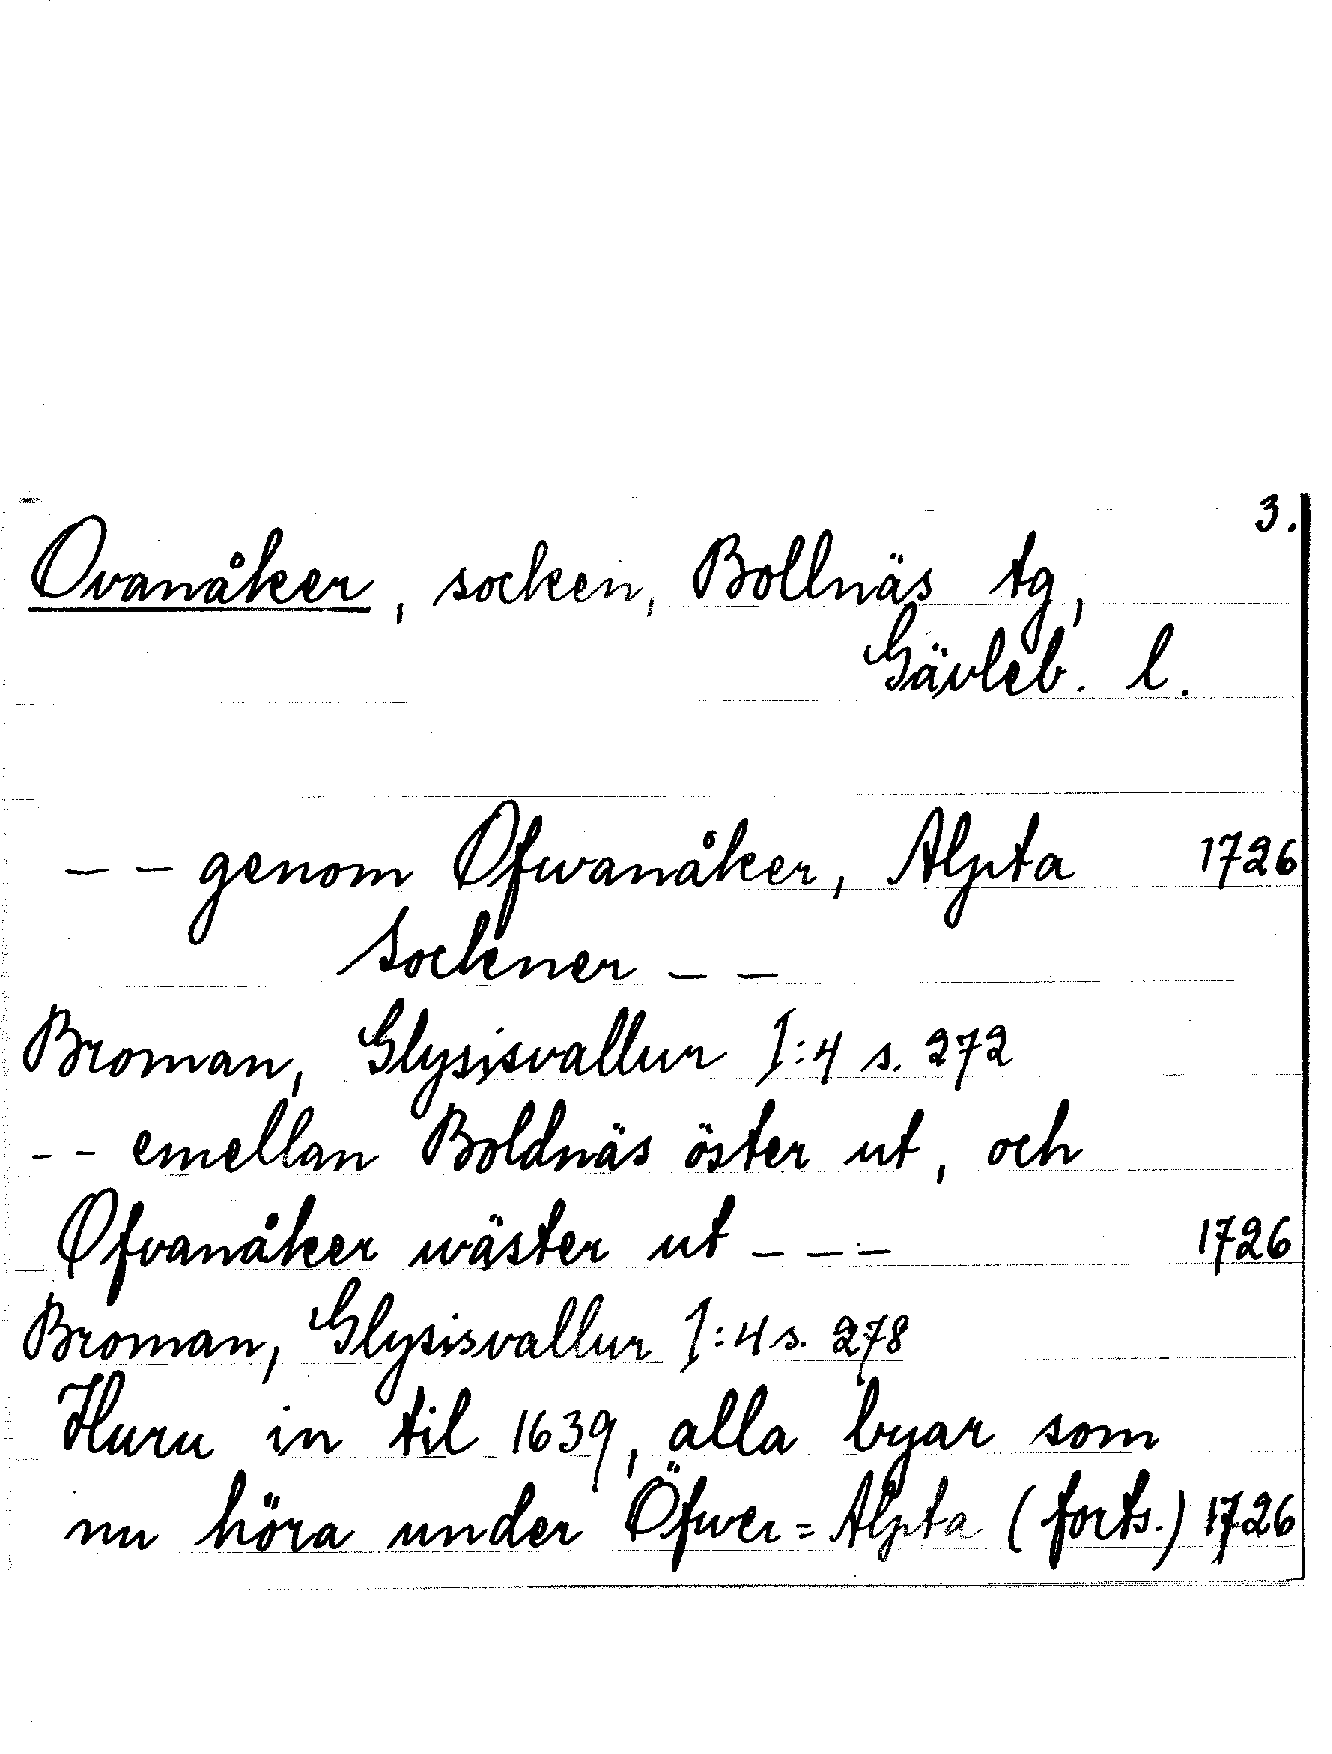 3.
Ovanåker, socken, Bollnäs tg,
Gävleb. l.
-- genom Ofwanåker, Alpta 1726
Sockner --
Broman, Glysisvallur I:4 s. 272
-- emellan Boldnäs öster ut, och
Ofvanåker wäster ut --- 1726
Broman, Glysisvallur I:4 s. 278
Huru in til 1639, alla byar som
nu höra under Öfwer=Alpta (forts.) 1726